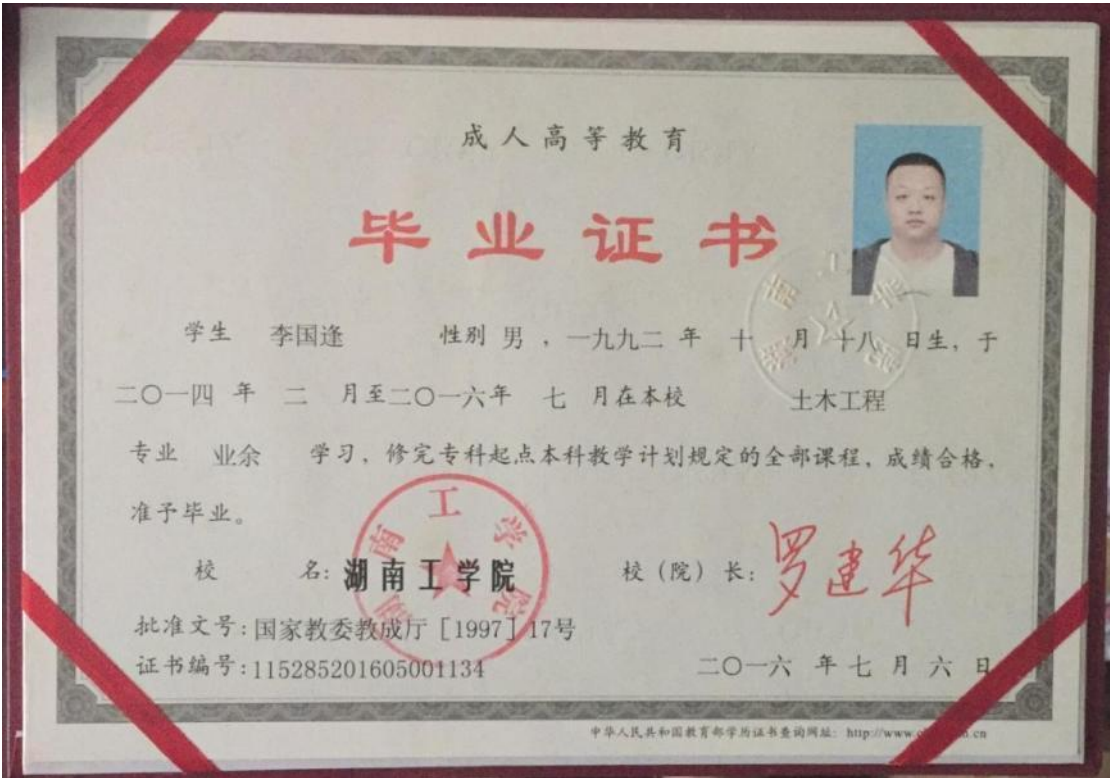 成人高等教育
毕业证书
学生 李国逢 性别 男 ，一九九二 年 十 月 十八 日生，于
二〇一四 年 二 月至二〇一六年 七 月在本校 土木工程
专业 业余 学习，修完专科起点本科教学计划规定的全部课程，成绩合格，
准予毕业。
湖南工学院
校 名：湖南工学院 校（院）长：罗建华
批准文号：国家教委教成厅［1997］17号
证书编号：115285201605001134 二〇一六 年 七 月 六 日
中华人民共和国教育部学历证书查询网址：http://www.